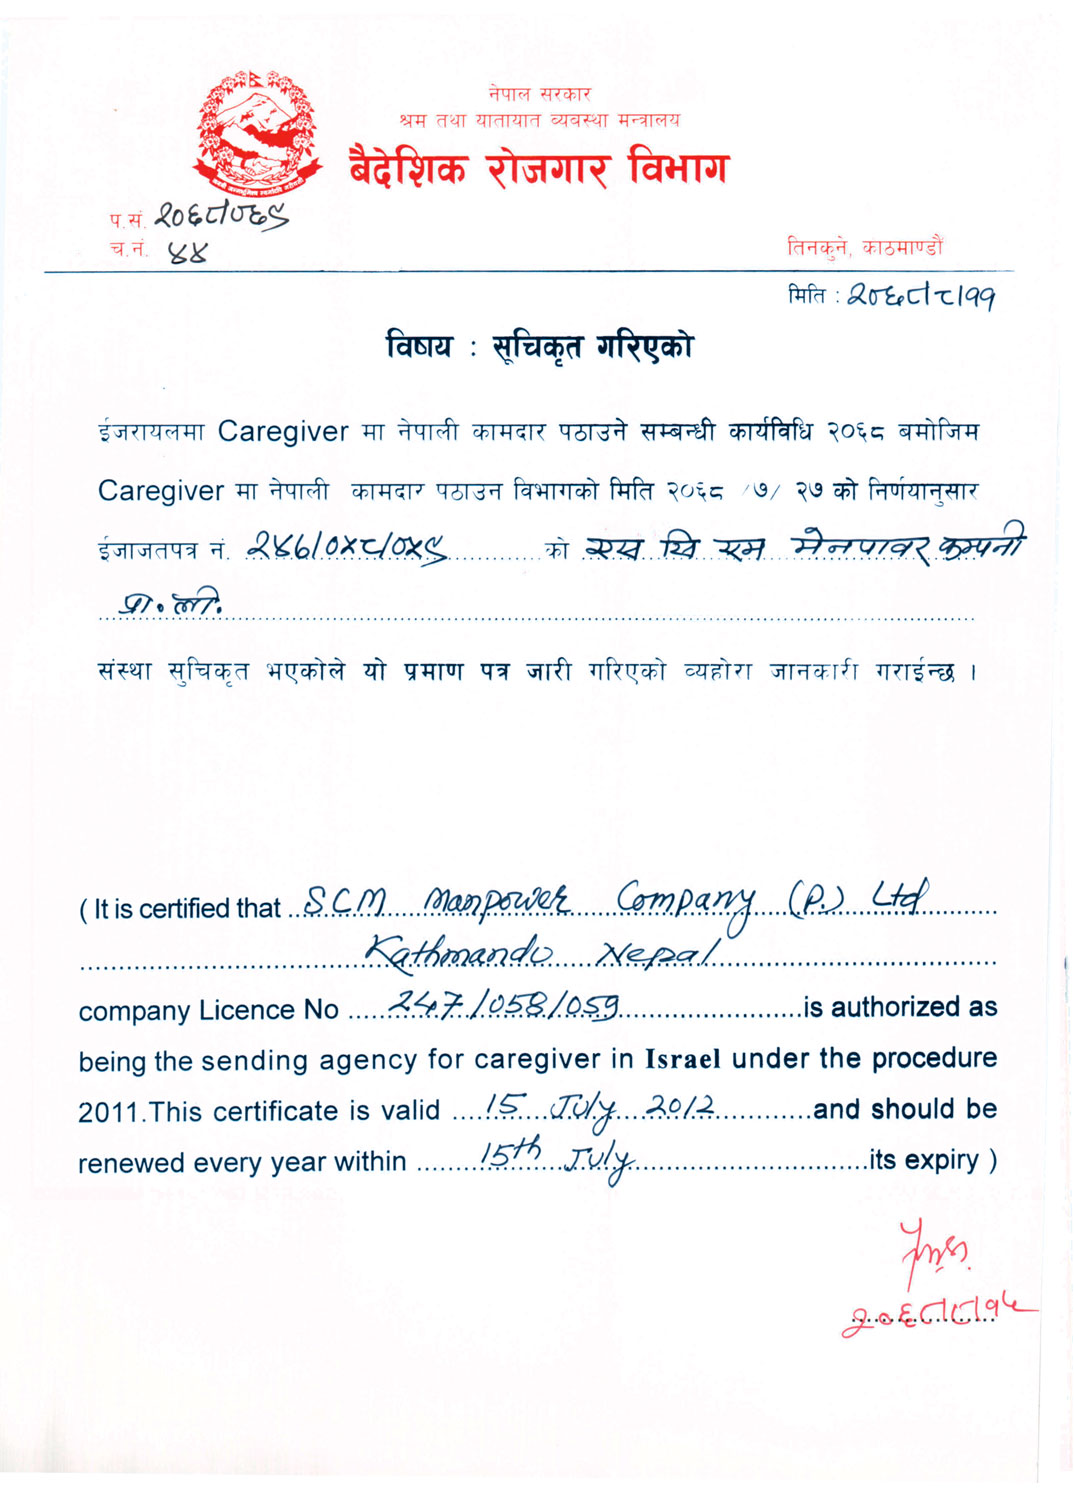 नेपाल सरकार
श्रम तथा यातायात व्यवस्था मन्त्रालय
बैदेशिक रोजगार विभाग
प.सं. २०६८/०६९
च.नं. ४४
तिनकुने, काठमाण्डौं
मिति : २०६८।८।११
विषय : सूचिकृत गरिएको
ईजरायलमा Caregiver मा नेपाली कामदार पठाउने सम्बन्धी कार्यविधि २०६८ बमोजिम
Caregiver मा नेपाली कामदार पठाउन विभागको मिति २०६८ /७/ २७ को निर्णयानुसार
ईजाजतपत्र नं. २४७/०५८/०५९ को एस सि एम मेनपावर कम्पनी
प्रा. ली.
संस्था सुचिकृत भएकोले यो प्रमाण पत्र जारी गरिएको व्यहोरा जानकारी गराईन्छ ।
( It is certified that SCM Manpower Company (P.) Ltd
Kathmandu Nepal
company Licence No 247/058/059 is authorized as
being the sending agency for caregiver in Israel under the procedure
2011.This certificate is valid 15 July 2012 and should be
renewed every year within 15th July its expiry )
२०६८।८।१५